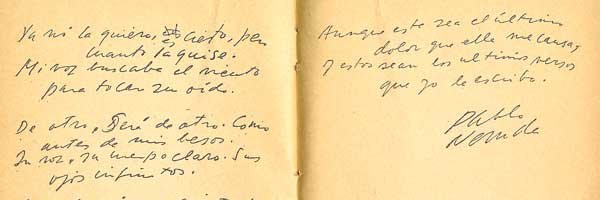 Ya no la quiero, es cierto, pero
cuanto la quise.
Mi voz buscaba el viento
para tocar su oído.
De otro, Será de otro. Como
antes de mis besos.
Su voz, su cuerpo claro. Sus
ojos infinitos.
Aunque este sea el último
dolor que ella me causa,
y estos sean los ultimos versos
que yo le escribo.
Pablo
Neruda